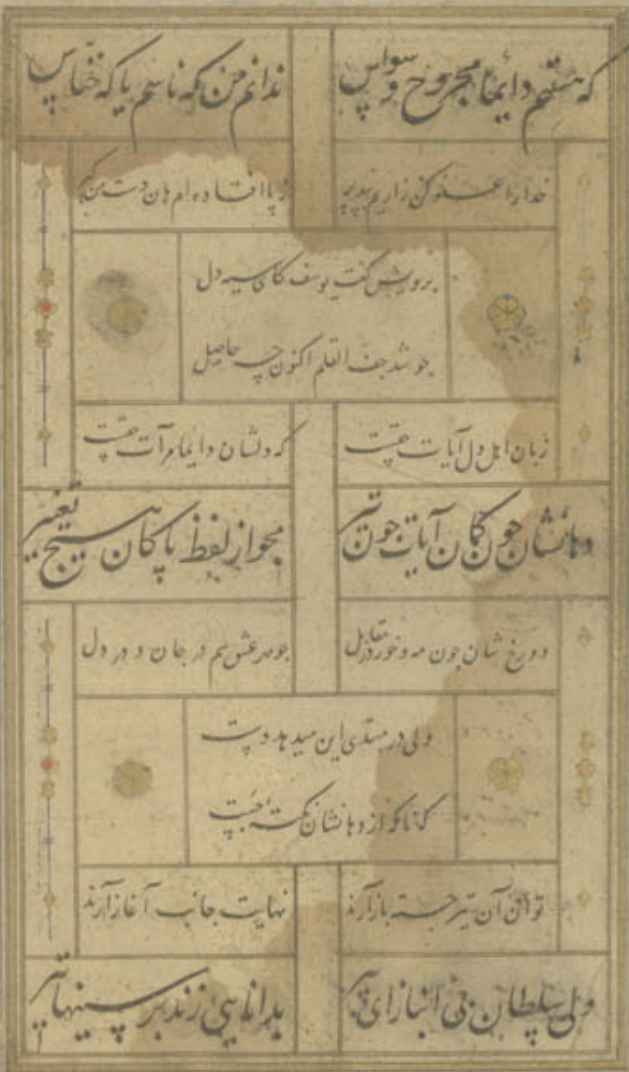 که هستم دایما مجروح وسواس
ندانم من که ناسم یا که خنّاس
خدارا عفو کن زاریم بپذیر
زپا افتاده ام هان دست من گیر
برویش گفت یوسف کای سیه دل
چو شد جف القلم اکنون چه حاصل
زبان اهل دل آیات حقست
که دلشان دایما مرآت حقست
دهانشان چون کمان آیات چون تیر
مجو از لفظ پاکان هیچ تغییر
دو رخ شان چون مه و خور در مقابل
چو مهر عشق هم در جان و در دل
ولی در مبتدی این میدهد دست
که ناگه از دهانشان نکتهٔ جست
توان آن تیر جسته باز آرند
نهایت جانب آغاز آرند
ولی سلطان بی انباز ای پیر
بدانایی زند بر سینها تیر